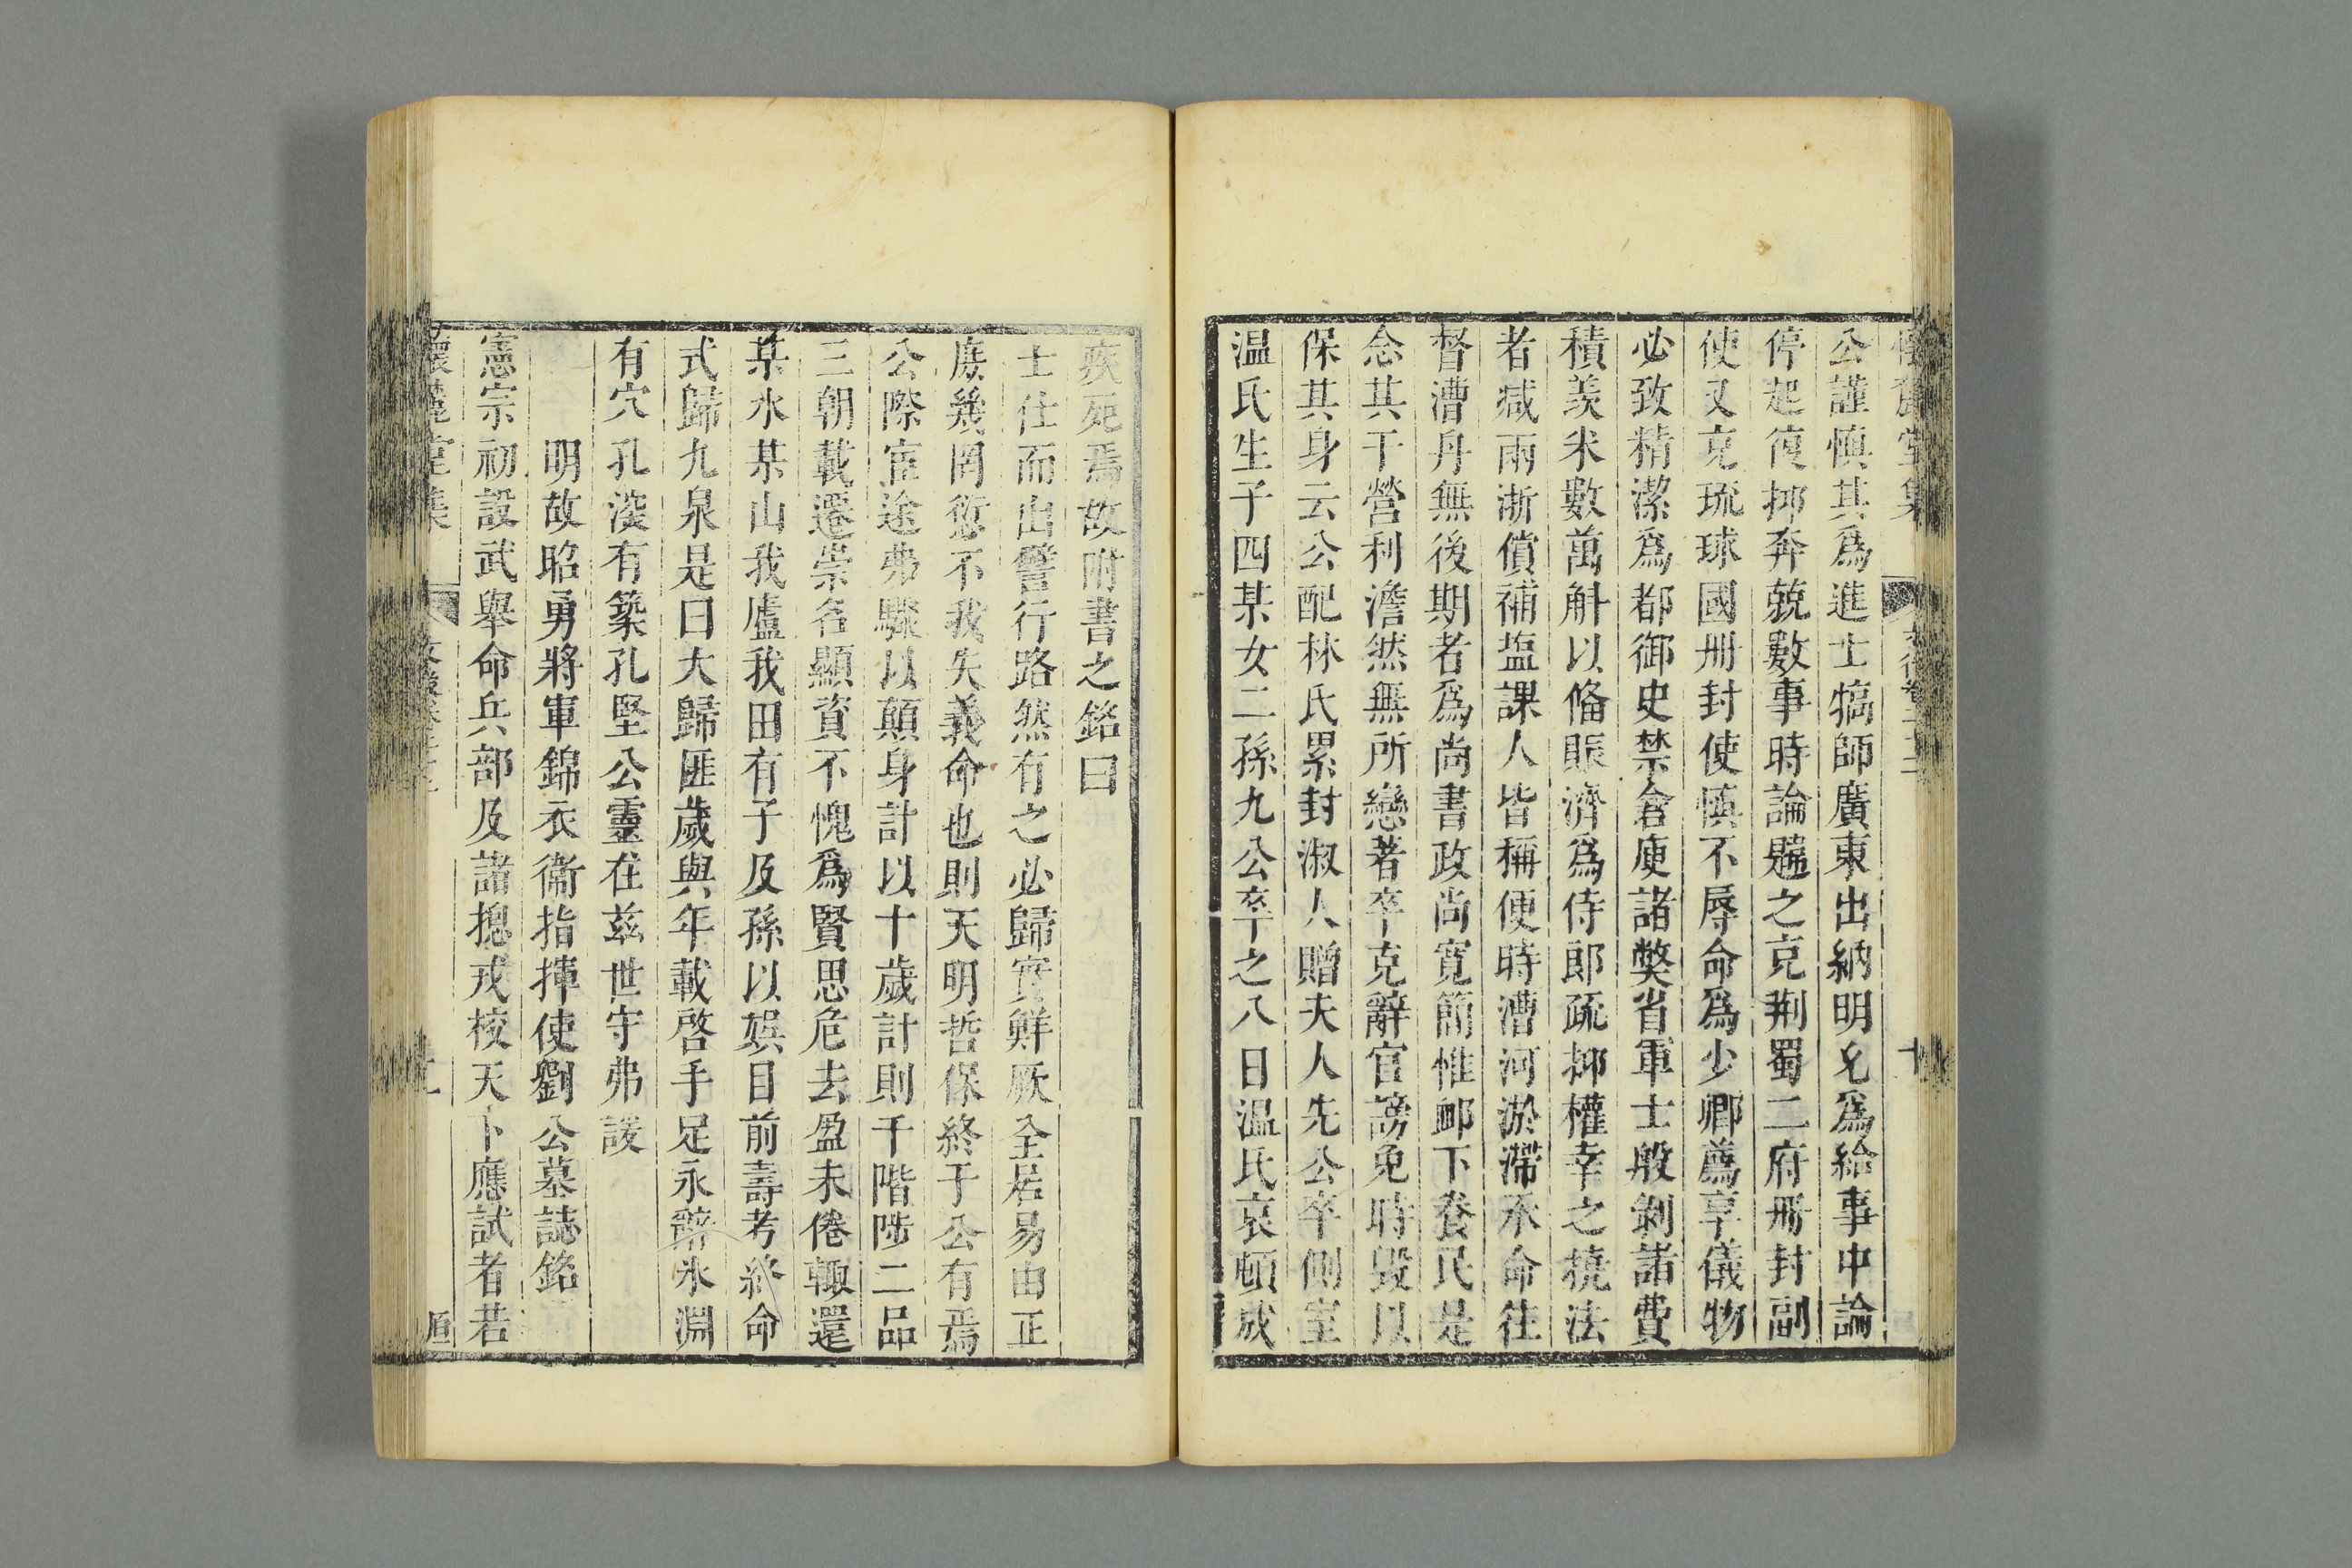 懷麓堂集 文後卷二十三 十
公謹慎其爲進士犒師廣東出納明允爲給事中論
停起復抑奔競數事時論韙之充荆蜀二府冊封副
使又充琉球國冊封使慎不辱命爲少卿薦享儀物
必致精潔爲都御史禁倉庾諸獘省軍士殷剝諸費
積羨米數萬斛以備賑濟爲侍郎疏抑權幸之撓法
者减兩浙償補塩課人皆稱便時漕河淤滯承命往
督漕舟無後期者爲尚書政尚寛簡惟䘏下養民是
念其干營利澹然無所戀著卒克辭官謗免時毀以
保其身云公配林氏累封淑人贈夫人先公卒側室
温氏生子四某女二孫九公卒之八日温氏哀頓成
疾死焉故附書之銘曰
士仕而出譬行路然有之必歸實鮮厥全居易由正
庶幾罔愆不我失義命也則天明哲保終于公有焉
公際宦途弗驟以顛身計以十歲計則千階陟二品
三朝載遷崇名顯資不愧爲賢思危去盈未倦輙還
某水某山我廬我田有子及孫以娯目前壽考終命
式歸九泉是曰大歸匪歲與年載啓手足永辭氷淵
有穴孔深有築孔堅公靈在兹世守弗諼
明故昭勇將軍錦衣衞指揮使劉公墓誌銘
憲宗初設武舉命兵部及諸摠戎校天下應試者若
懷麓堂集 文後卷二十三 十一